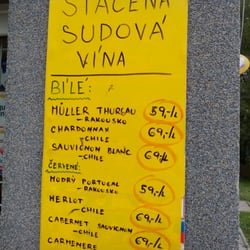 STÁČENÁ
SUDOVÁ
VÍNA
BÍLÉ:
MÜLLER THURGAU 59,-/L
- RAKOUSKO
CHARDONNAY 69,-/L
- CHILE
SAUVIGNON BLANC 69,-/L
- CHILE
ČERVENÉ:
MODRÝ PORTUGAL 59,-/L
- RAKOUSKO
MERLOT
- CHILE 69,-/L
CABERNET SAUVIGNON
- CHILE 69,-/L
CARMENERE 69,-/L